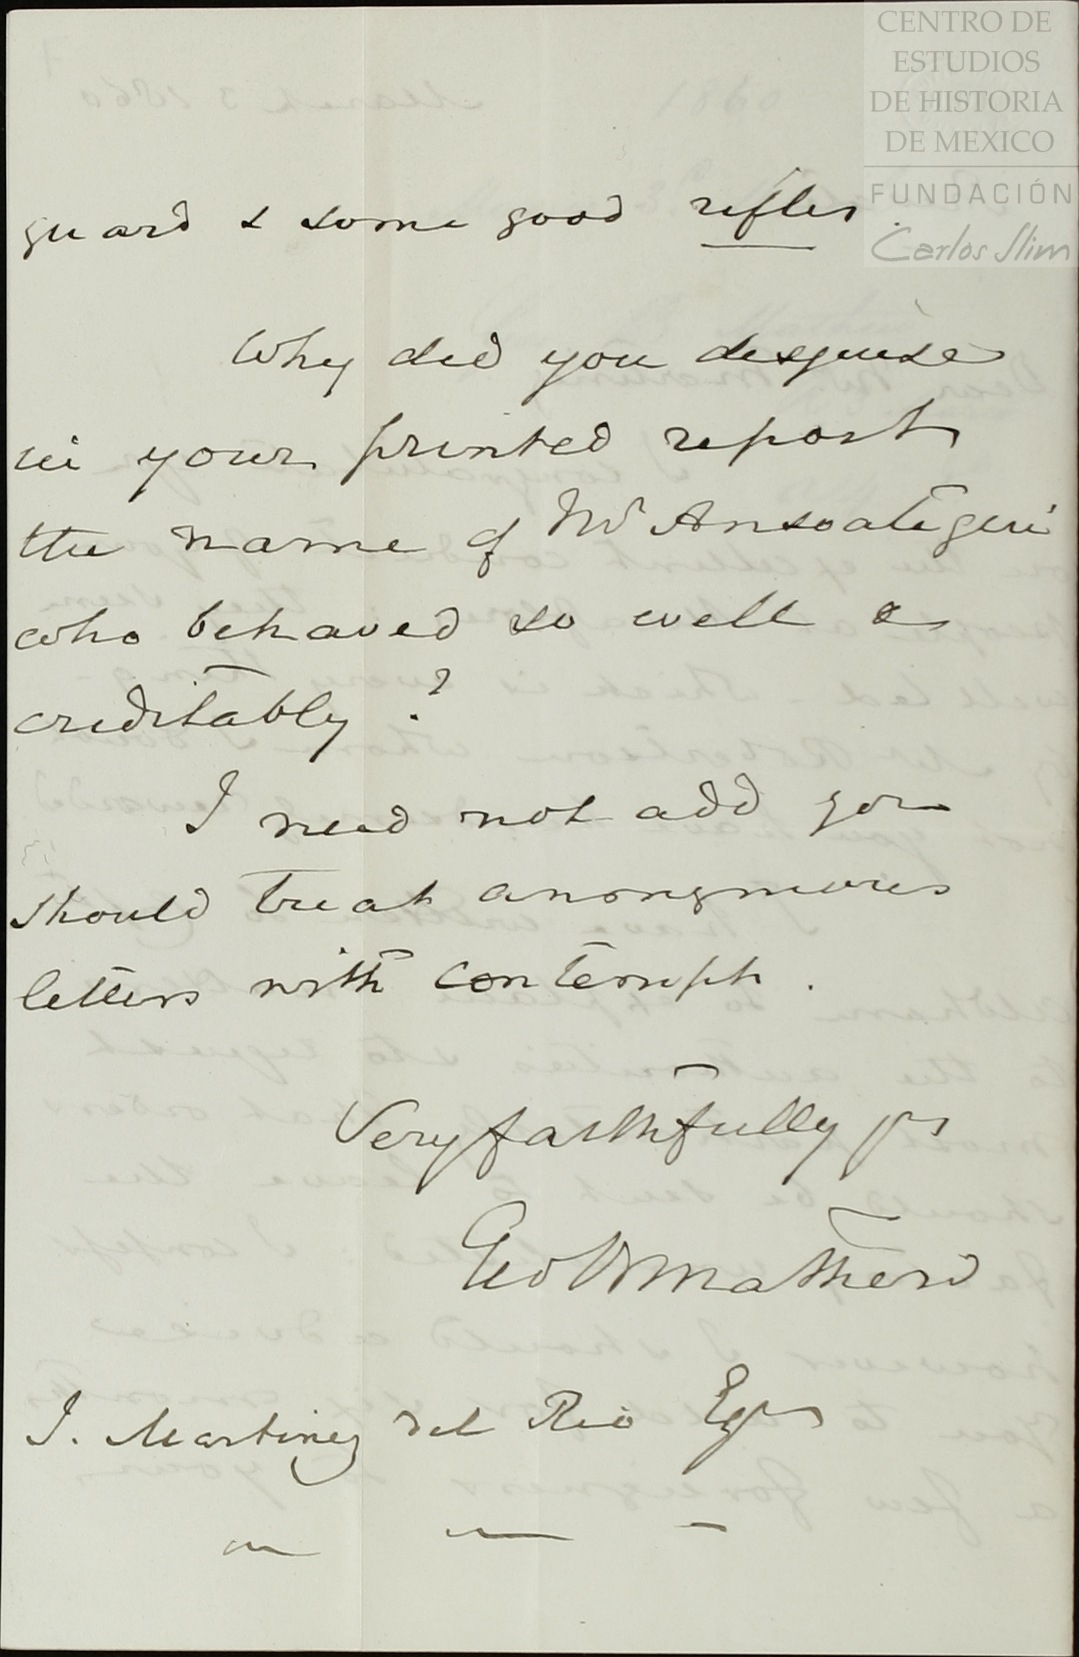 CENTRO DE
ESTUDIOS
DE HISTORIA
DE MEXICO
FUNDACIÓN
Carlos Slim
guard & some good rifles
Why did you disguise
in your printed report
the name of Mr Ansoategui
who behaved so well &
creditably?
I need not add you
should treat anonymous
letters with contempt.
Very faithfully yrs
Geo B Mathew
J. Martinez del Rio Eqr